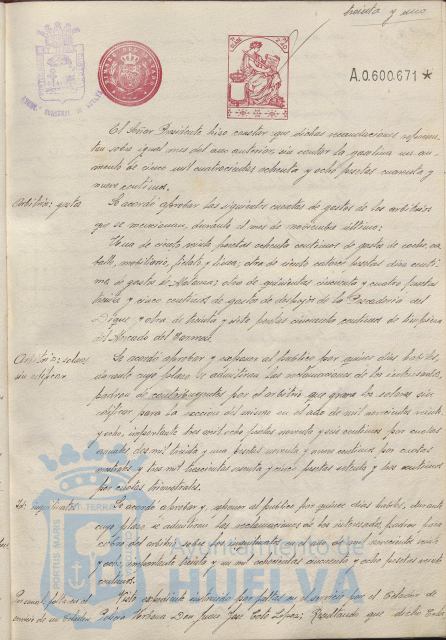 treinta y uno
A.0.600.671 *
El Señor Presidente hizo constar que dichas recaudaciones
sobre igual mes del año anterior, sin contar la gasolina un au-
mento de cinco mil cuatrocientas ochenta y ocho pesetas cuarenta y
nueve centimos.
Arbitrios: gastos
Se acordó aprobar las siguientes cuentas de gastos de los arbitrios
que se mencionan, durante el mes de noviembre último:
Una de ciento pesetas ochenta centimos de gastos de
mobiliario, otra de ciento catorce pesetas diez centi-
mos, de gastos de Matanza; otra de quinientas cincuenta y cuatro pesetas
treinta y cinco centimos de gastos de de la Pescaderia del
Dique y otra de treinta y siete pesetas cincuenta centimos de limpieza
del Mercado del Carmen.
Arbitrio: solares
sin edificar
Se acordó aprobar y exponer al publico por quince dias habiles,
durante cuyo plazo se admitiran las reclamaciones de los interesados,
padron de contribuyentes por el arbitrio que grava los solares sin
edificar para la exaccion del mismo en el año de mil novecientos veinti-
y ocho, importante tres mil ocho pesetas noventa y seis centimos por cuotas
anuales dos mil treinta y una pesetas noventa y nueve centimos por cuotas
y tres mil trescientas sesenta y cinco pesetas setenta y dos centimos
por cuotas trimestrales.
Id: inquilinatos
Se acordó aprobar y exponer al publico por quince dias habiles, durante
cuyo plazo se admitiran las reclamaciones de los interesados, padron para
cobro del arbitrio sobre los inquilinatos en el año de mil novecientos veinti
y ocho, importante treinta y un mil ochocientas cincuenta y ocho pesetas veinte
centimos.
Personal: falta en el
servicio de un Celador
Visto expediente instruido por faltas en el servicio por el Celador de
Policia Urbana Don José Soto Lopez; Resultando que dicho Cela-
Ayuntamiento de
HUELVA
PORTUS MARIS